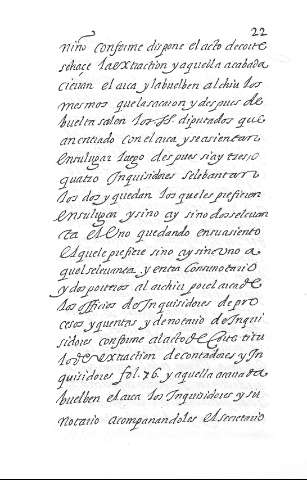 22
niño conforme dispone el acto de corte
se haçe la extraction y aquella acabada
cierran el arca y la buelben al chiu los
mesmos que la sacaron y despues de
buelta salen los SS. diputados que
an entrado con el arca y se asientan
en su lugar luego despues si ay tres, o
quatro Inquisidores se lebantan
los dos y quedan los que les prefieren
en su lugar y si no ay sino dos se leuan
ta el Uno quedando en su asiento
el que le prefiere si no ay sino uno a
quel se levanta y entra Con un notario
y dos porteros al archiu por el arca de
los officios de Inquisidores de pro
cesos y quentas y de notario de Inqui
sidores conforme al acto de Corte titu
lo de extraction de contadores y In
quisidores fol. 76. y aquella sacada
buelben el arca los Inquisidores y su
Notario acompañandoles el secretario